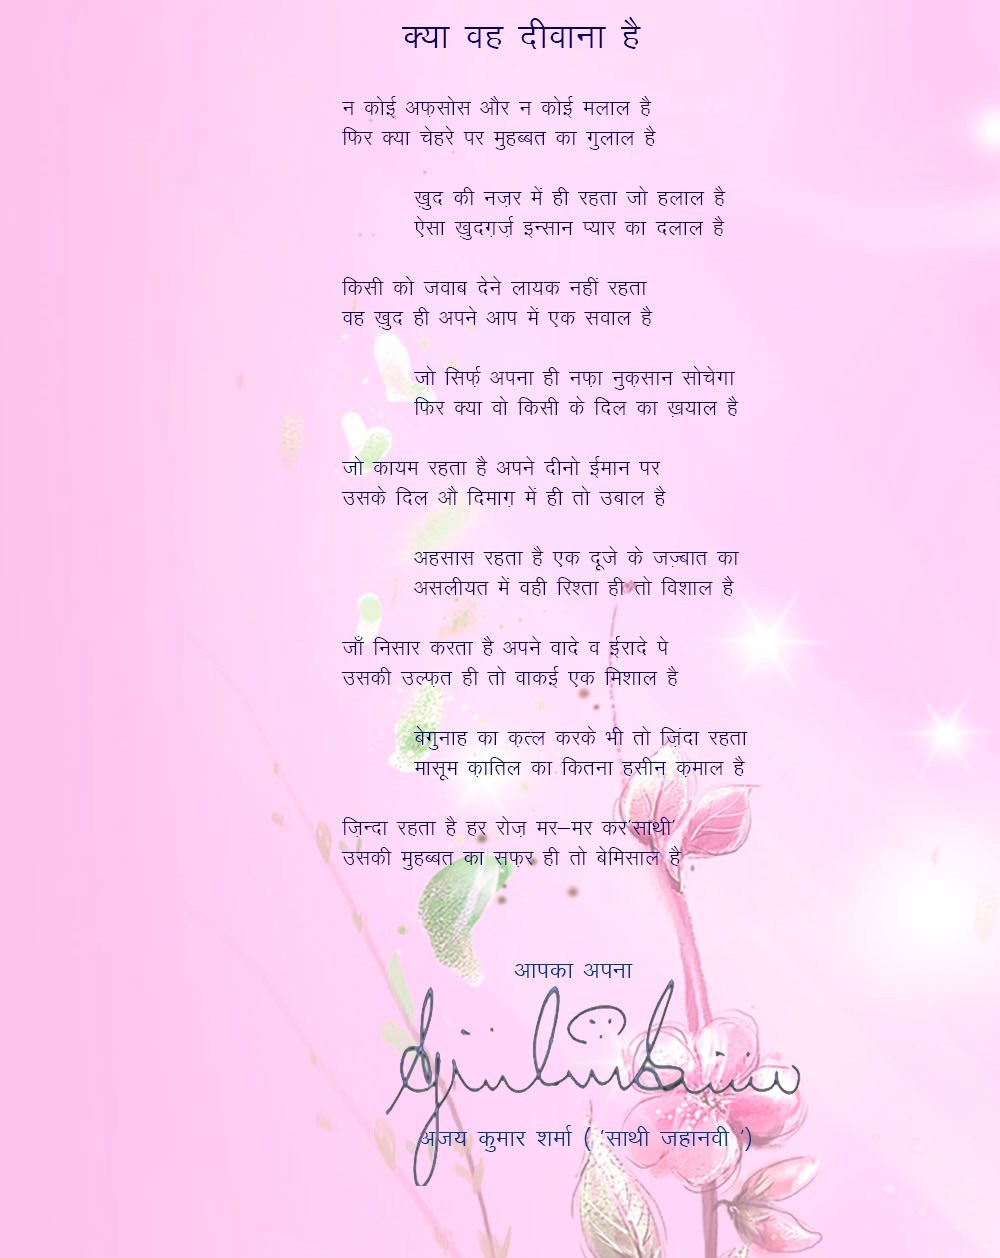 क्या वह दीवाना है
न कोई अफ़सोस और न कोई मलाल है
फिर क्या चेहरे पर मुहब्बत का गुलाल है
ख़ुद की नज़र में ही रहता जो हलाल है
ऐसा ख़ुदग़र्ज़ इन्सान प्यार का दलाल है
किसी को जवाब देने लायक नहीं रहता
वह ख़ुद ही अपने आप में एक सवाल है
जो सिर्फ़ अपना ही नफ़ा नुक़सान सोचेगा
फिर क्या वो किसी के दिल का ख़याल है
जो कायम रहता है अपने दीनो ईमान पर
उसके दिल औ दिमाग़ में ही तो उबाल है
अहसास रहता है एक दूजे के जज़्बात का
असलीयत में वही रिश्ता ही तो विशाल है
जाँ निसार करता है अपने वादे व ईरादे पे
उसकी उल्फ़त ही तो वाकई एक मिशाल है
बेगुनाह का क़त्ल करके भी तो ज़िंदा रहता
मासूम क़ातिल का कितना हसीन क़माल है
ज़िन्दा रहता है हर रोज़ मर–मर कर'साथी'
उसकी मुहब्बत का सफ़र ही तो बेमिसाल है
आपका अपना
अजय कुमार शर्मा ( 'साथी जहानवी ')